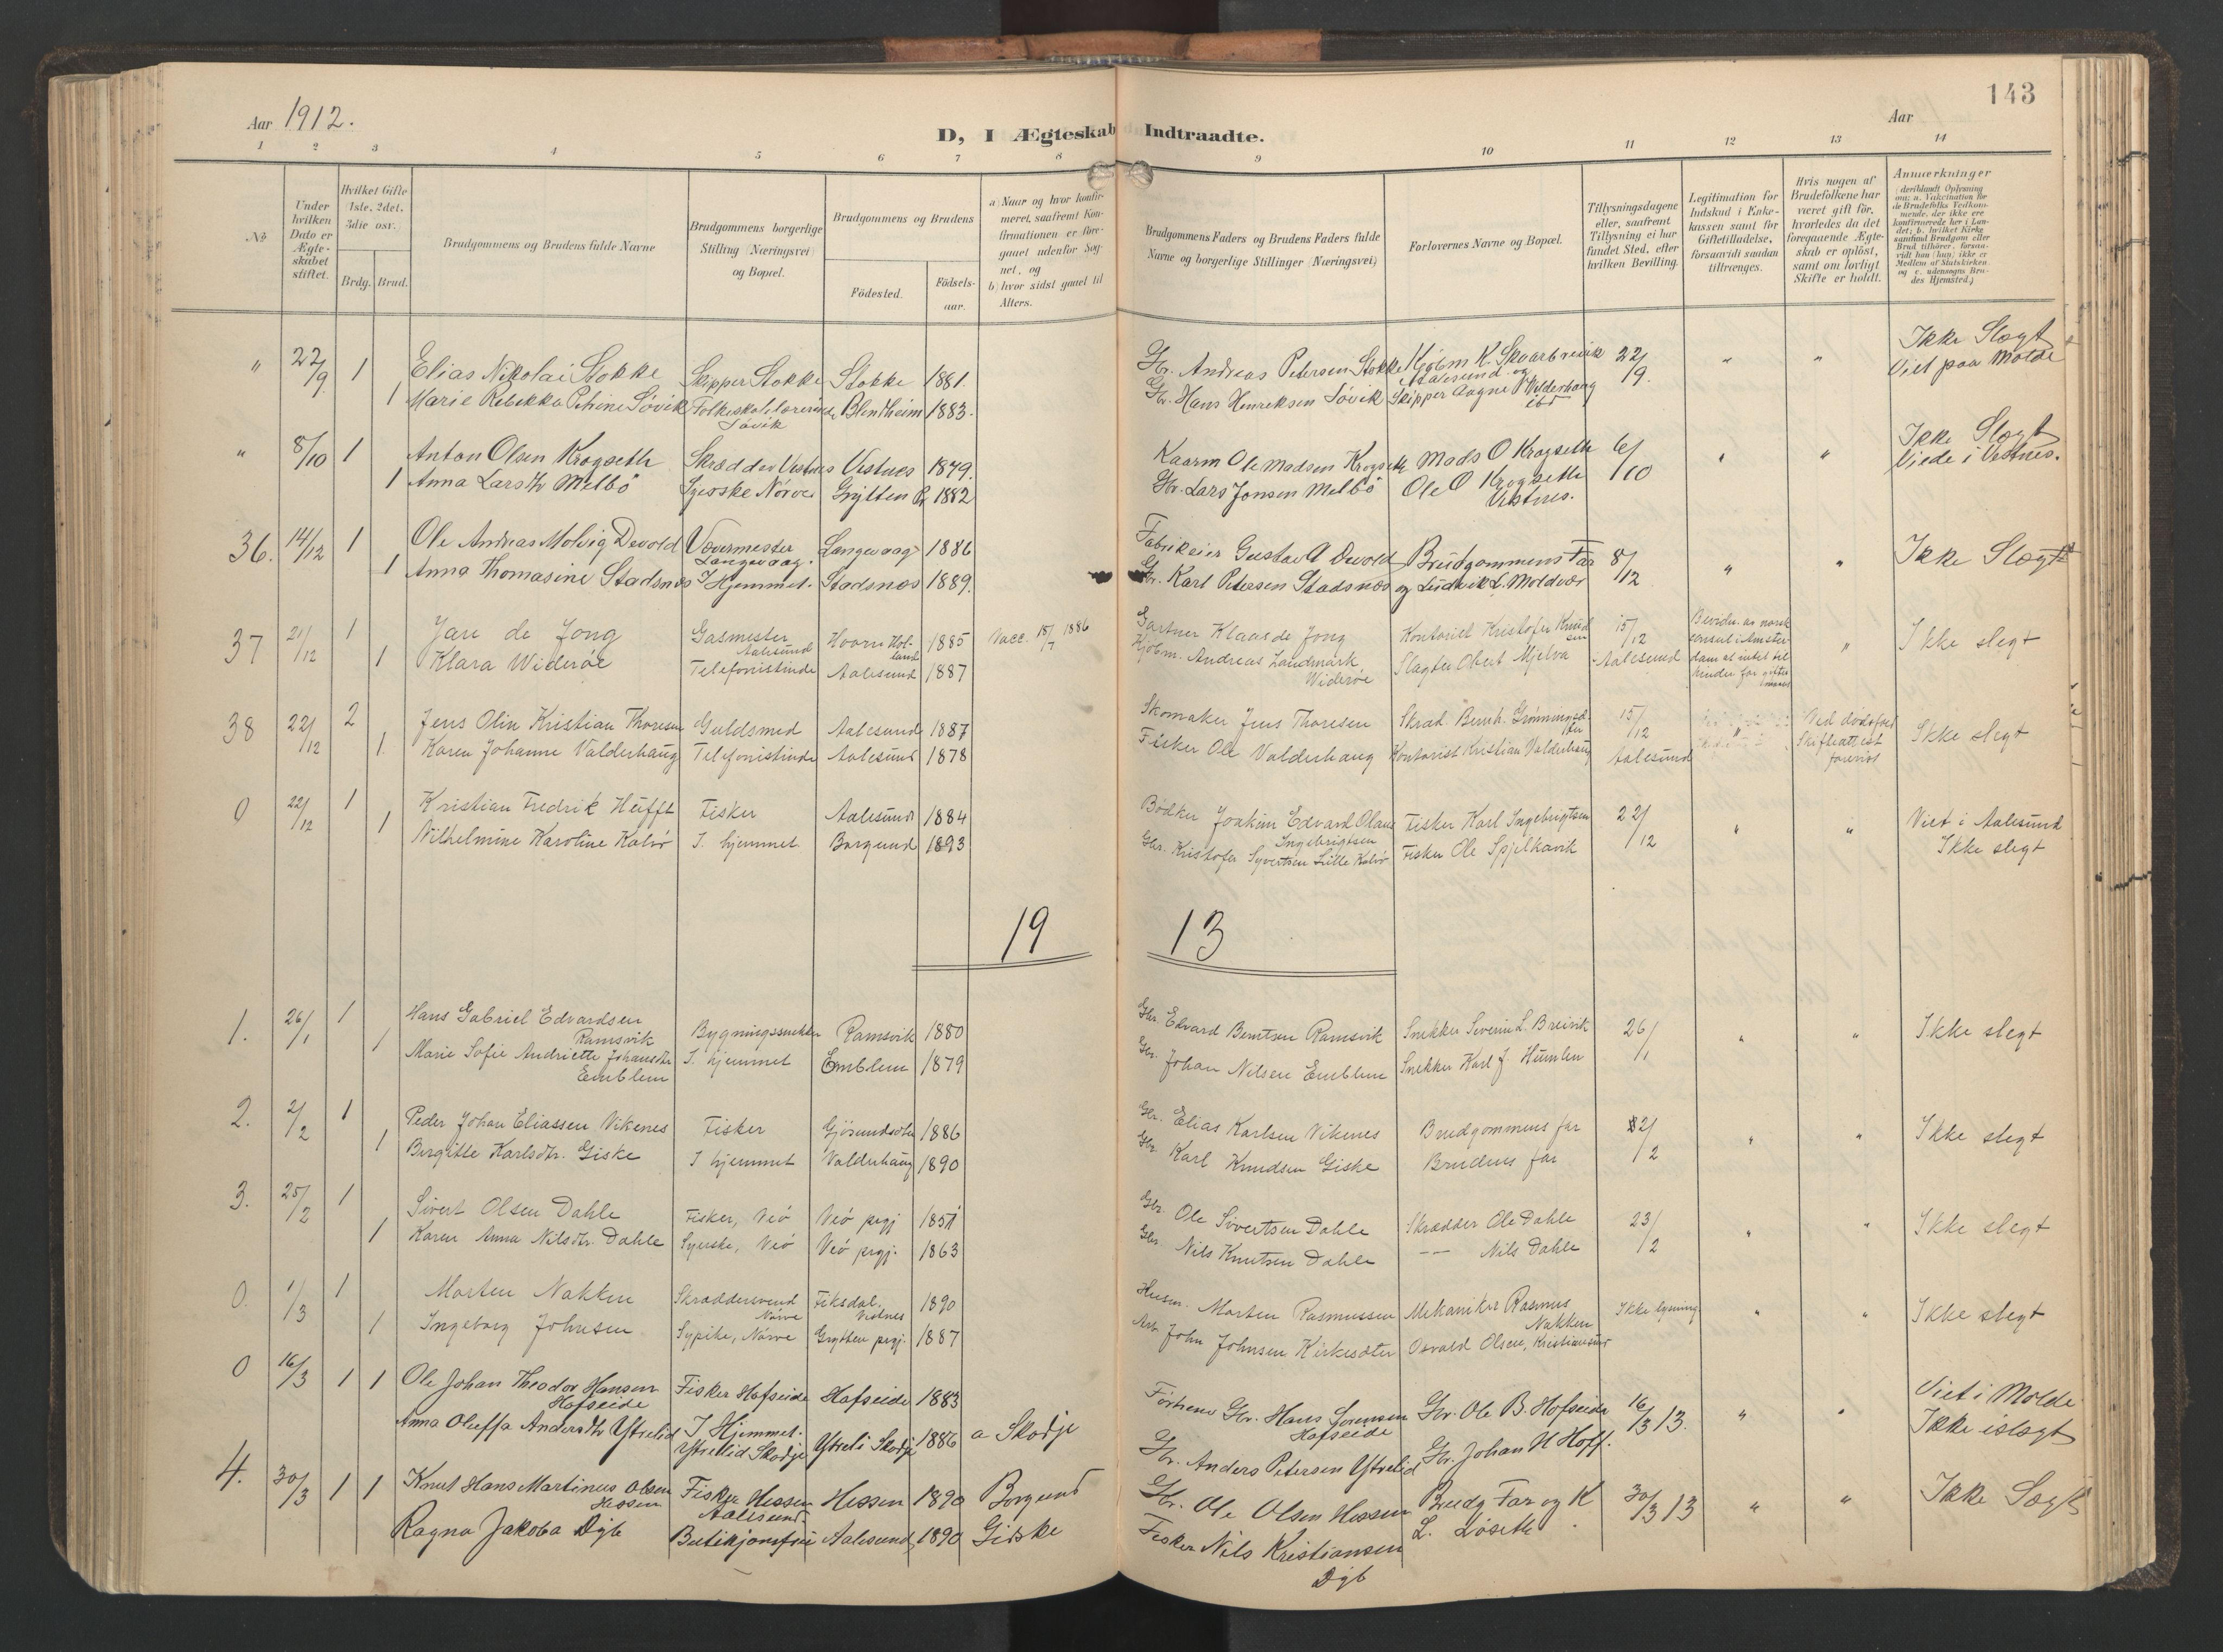 143
Aar 1912.
Aar
D, I Ægteskab Indtraadte.
1 2 3 4 5 6 7 8 9 10 11 12 13 14
No
Under hvilken Dato er Ægteskabet stiftet.
Hvilket Gifte (1ste, 2det, 3die osv.
Brdg. Brud.
Brudgommens og Brudens fulde Navne
Brudgommens borgerlige Stilling (Næringsvei) og Bopæl.
Brudgommens og Brudens
Födested.
Födselsaar.
a) Naar og hvor konfirmeret, saafremt Konfirmationen er foregaaet udenfor Sognet, og
b) hvor sidst gaaet til Alters.
Brudgommens Faders og Brudens Faders fulde Navne og borgerlige Stillinger (Næringsvei)
Forlovernes Navne og Bopæl.
Tillysningsdagene eller, saafremt Tillysning ei har fundet Sted, efter hvilken Bevilling.
Legitimation for Indskud i Enkekassen samt for Giftetilladelse, forsaavidt saadan tiltrænges.
Hvis nogen af Brudefolkene har været gift för, hvorledes da det foregaaende Ægteskab er oplöst, samt om lovligt Skifte er holdt.
Anmærkninger (deriblandt Oplysning om: a. Vakcination for de Brudefolks Vedkommende, der ikke ere konfirmerede her i Landet; b. hvilket Kirkesamfund Brudgom eller Brud tilhörer, forsaavidt han (hun) ikke er Medlem af Statskirken, og c. udensogns Brudes Hjemsted.)
" 22/9 1 Elias Nikolai Stokke Skipper Stokke Stokke 1881. Gbr. Andreas Petersen Stokke Kjöbm K. Skarbrevik Aalesund og 22/9. " " Ikke Slægt Viet paa Molde
1 Marie Rebekka Petrine Sövik Folkeskolelærerinde Sövik Blindheim 1883. Gbr. Hans Henriksen Sövik Skipper Aagne P Valderhaug ibd
" 8/10 1 Anton Olsen Krogseth Skrædder Vestnes Vestnes 1879. Kaarm Ole Madsen Krogseth Mads O Krogseth 6/10 " " Ikke Slægt Viede i Vestnes.
1 Anna Larsdtr Melbö Syerske Nörve Grytten P. 1882 Gbr. Lars Jonsen Melbö Ole O Krogseth Vestnes.
36. 14/12 1 Ole Andreas Molvig Devold Vævermester Langevaag. Langevaag 1886 Fabrikeier Gustav A Devold Brudgommens Far 8/12 " " Ikke Slægt
1 Anna Thomasine Stadsnæs I Hjemmet. Stadsnæs 1889. Gbr. Karl Petersen Stadsnæs og Ludvik L. Moldvær
37 21/12 1 Jan de Jong Gasmester Aalesund Hoorn Holland 1885 Vacc. 15/7 1886 Gartner Klaas de Jong Kontorist Kristofer Knudsen 15/12 Aalesund Bevidn. av norsk consul i Amsterdam at intet til hinder for giftermaal " Ikke slegt
1 Klara Wideröe Telefonistinde Aalesund 1887 Kjöbm. Andreas Landmark Wideröe Slagter Obert Mjelva
38 22/12 2 Jens Olin Kristian Thoresen Guldsmed Aalesund 1887 Skomaker Jens Thoresen Skræd. Bernh. Grönningsæter 15/12 Aalesund " Ved dödsfald Skifteattest forevist Ikke slegt
1 Karen Johanne Valderhaug Telefonistinde Aalesund 1878 Fisker Ole Valderhaug Kontorist Kristian Valderhaug
0 22/12 1 Kristian Fredrik Hufft Fisker Aalesund 1884 Bödker Joakim Edvard Olaus Ingebrigtsen Fisker Karl Ingebrigtsen 22/12 " " Viet i Aalesund Ikke slegt
1 Vilhelmine Karoline Kalvö I hjemmet Borgund 1893 Gbr. Kristofer Syvertsen Lille Kalvö Fisker Ole Spjelkavik
19 13
1. 26/1 1 Hans Gabriel Edvardsen Ramsvik Bygningssnekker Ramsvik 1880 Gbr. Edvard Berntsen Ramsvik Snekker Severin L. Breivik 26/1 " " Ikke slegt
1 Marie Sofie Andriette Johansdtr Emblem I hjemmet Emblem 1879 Gbr. Johan Nilsen Emblem Snekker Karl J. Humlen
2. 2/2 1 Peder Johan Eliassen Vikenes Fisker Gjösundsæter 1886 Gbr. Elias Karlsen Vikenes Brudgommens far 2/2 " " Ikke slegt
1 Birgitte Karlsdtr. Giske I hjemmet Valderhaug 1890 Gbr. Karl Knudsen Giske Brudens far
3. 25/2 1 Sivert Olsen Dahle Fisker, Veö Veö prgj 1851 Gbr. Ole Sivertsen Dahle Skrædder Ole Dahle 23/2 " " Ikke slegt
1 Karen Anna Nilsdtr. Dahle Syerske, Veö Veö prgj. 1863 Gbr. Nils Knutsen Dahle —— Nils Dahle
0. 1/3 1 Morten Nakken Skræddersvend Nörve Fiksdal. Vestnes 1890 Husm. Morten Rasmussen Mekaniker Rasmus Nakken Ikke lysning " " Ikke slegt
1 Ingeborg Johnsen Sypike, Nörve Grytten prgj. 1887 Arb. John Johnsen Kirkesæter Osvald Olsen, Kristiansund
0 16/3 1 1 Ole Johan Theodor Hansen Hofseide Fisker Hofseide Hofseide 1883 Förhenv Gbr. Hans Sorensen Hofseide Gbr. Ole B. Hofseide 16/3 13. " " Viet i Molde Ikke i slægt
Anna Oluffa Andersdtr Ytrelid I Hjemmet. Ytrelid Skodje Ytreli Skodje 1886 a Skodje Gbr. Anders Petersen Ytrelid Gbr. Johan N Hoff.
4. 30/3 1 1 Knut Hans Martinus Olsen Hessen Fisker Hessen Aalesund Hessen 1890 Borgund Gbr. Ole Olsen Hessen Brudg Far og K L. Löseth 30/3 13 " " Ikke Sægt
Ragna Jakoba Dyb Butikjomfru Aalesund 1890 Giske Fisker Nils Kristiansen Dyb